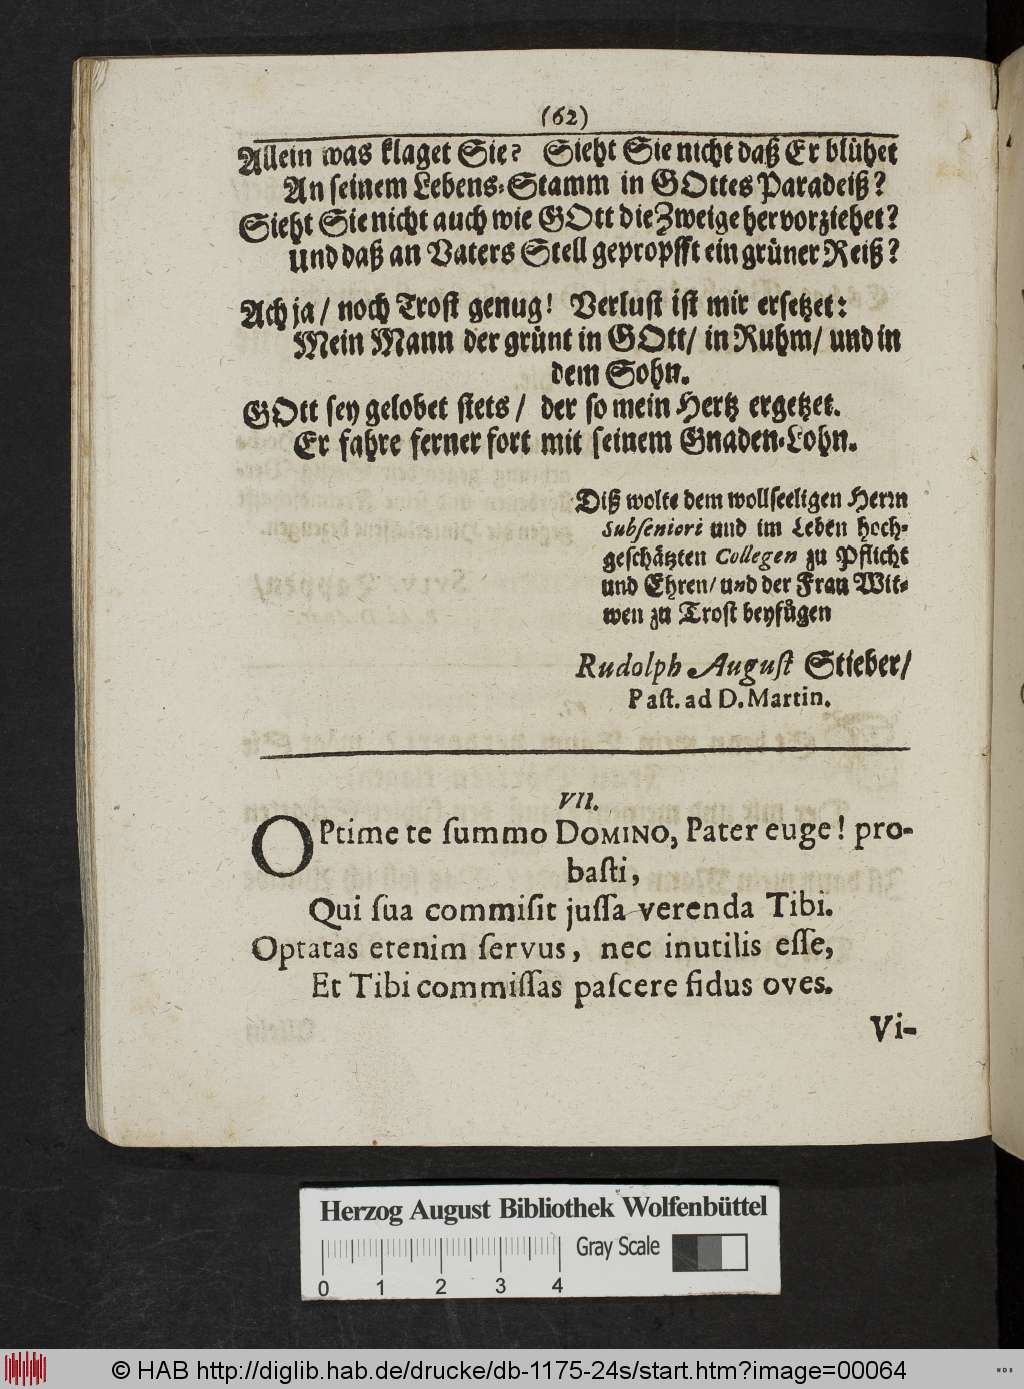 (62)
Allein was klaget Sie? Sieht Sie nicht daß Er blühet
An seinem Lebens-Stamm in GOttes Paradeiß?
Sieht Sie nicht auch wie GOtt die Zweige hervorziehet?
Und daß an Vaters Stell gepropfft ein grüner Reiß?
Ach ja / noch Trost genug! Verlust ist mir ersetzet:
Mein Mann der grünt in GOtt / in Ruhm / und in
dem Sohn.
GOtt sey gelobet stets / der so mein Hertz ergetzet.
Er fahre ferner fort mit seinem Gnaden-Lohn.
Diß wolte dem wollseeligen Herrn
Subſeniori und im Leben hoch-
geschätzten Collegen zu Pflicht
und Ehren / und der Frau Wit-
wen zu Trost beyfügen
Rudolph Auguſt Stieber /
Paſt. ad D. Martin.
VII.
OPtime te ſummo DOMINO, Pater euge! pro-
baſti,
Qui ſua commiſit juſſa verenda Tibi.
Optatas etenim ſervus, nec inutilis eſſe,
Et Tibi commiſſas paſcere fidus oves.
Vi-
Herzog August Bibliothek Wolfenbüttel
Gray Scale
0 1 2 3 4
© HAB http://diglib.hab.de/drucke/db-1175-24s/start.htm?image=00064